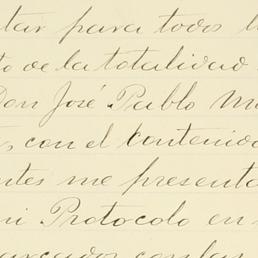 tar para todos l
to de la totalidad
Don José Pablo M
, con el contenido
ntes me presenta
mi Protocolo en